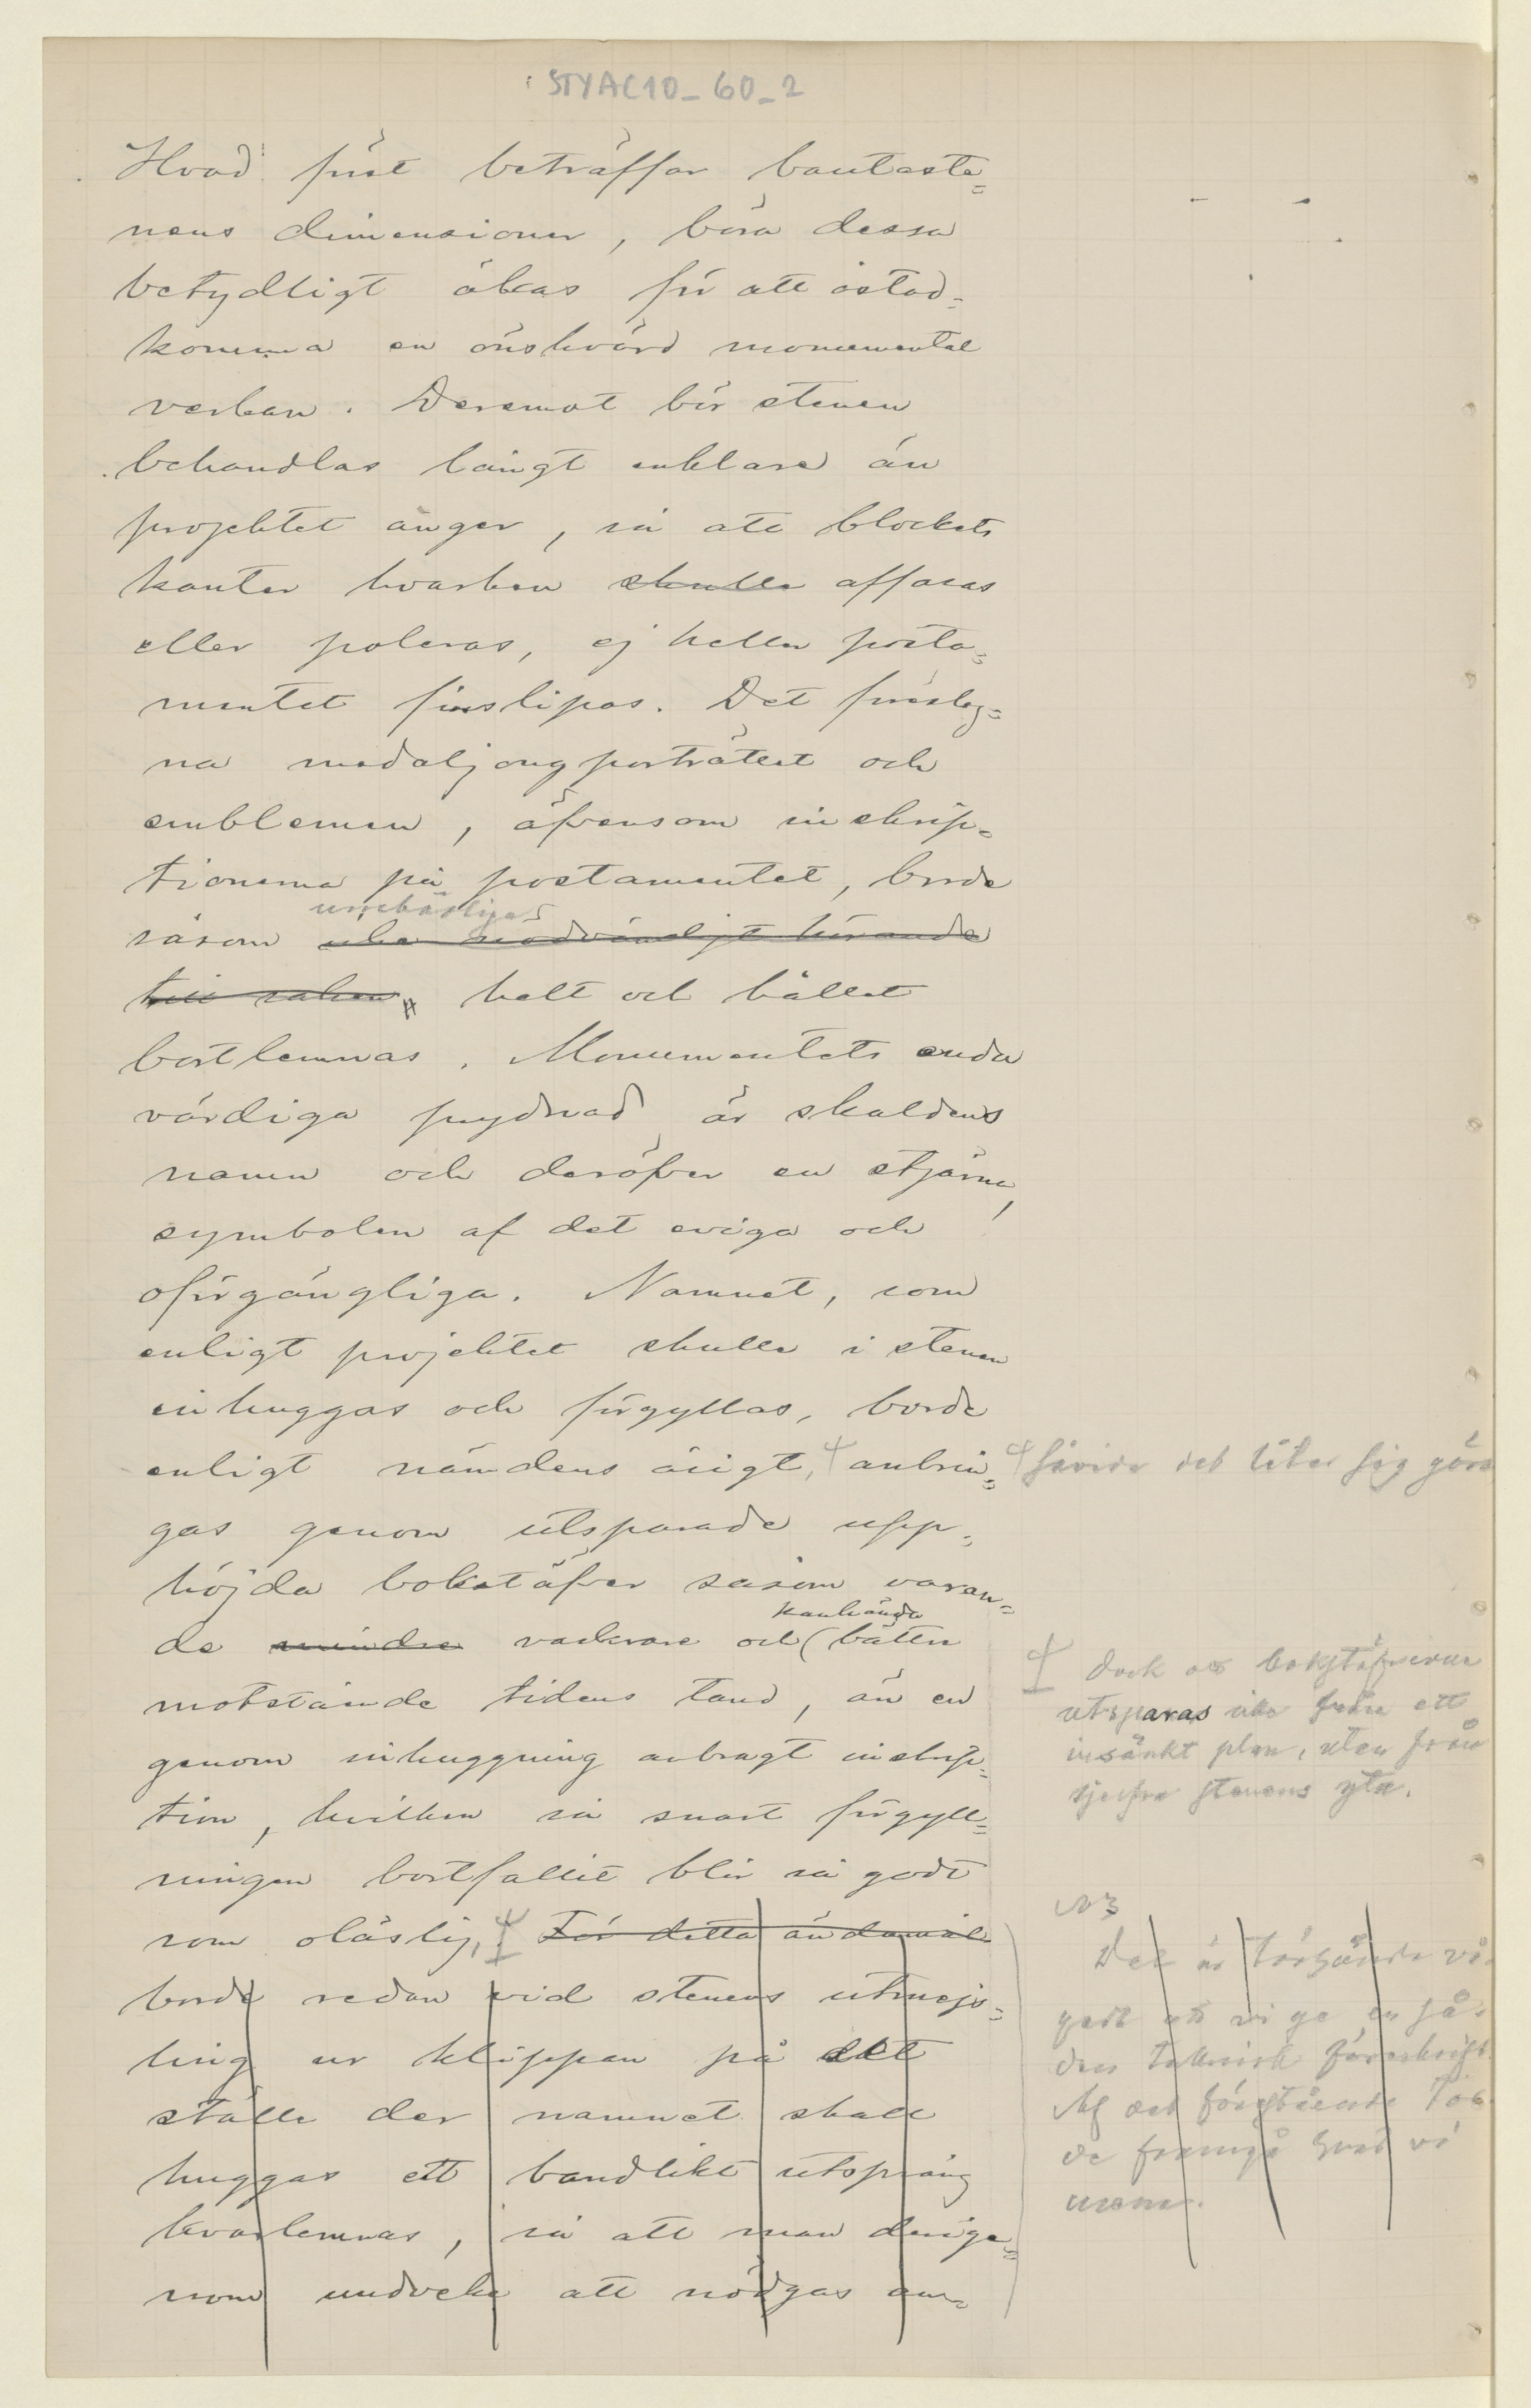 STYAC10_60_2
Hvad först beträffar bautaste=
nens dimensioner, böra dessa
betydligt ökas för att åstad=
komma en önskvärd monumental
verkan. Deremot bör stenen
behandlas långt enklare än
projektet anger, så att blockets
kanter hvarken skulle affasas
eller poleras, ej heller posta=
mentet finslipas. Det föreslag=
na medaljongporträttet och
emblemen, äfvensom inskrip=
tionerna på postamentet, borde
umbärliga
såsom icke nödvändigt hörande
till saken, helt och hållet
bortlemnas. Monumentets enda
värdiga prydnad är skaldens
namn och deröfver en stjärna,
symbolen af det eviga och
oförgängliga. Namnet, som
enligt projektet skulle i stenen
inhuggas och förgyllas, borde
enligt nämdens åsigt, anbrin= såvida det låter sig göra
gas genom utsparade upp=
höjda bokstäfver såsom varan=
kanhända
de mindre vackrare och bättre
motstående tidens tand, än en
genom inhuggning anbragt inskrip=
tion, hvilken så snart förgyll=
ningen bortfallit blir så godt
som oläslig. För detta ändamål
borde redan vid stenens utmejs=
ling ur klippan på det
ställe der namnet skall
huggas ett bandlikt utsprång
kvarlemnas, så att man derige=
nom undveke att nödgas an=
dock att bokstäfverna
utsparas icke från ett
insänkt plan, utan från
sjelfva stenens yta.
Det är
att vi ge en så=
dan teknisk föreskrift.
Af det föregående tor=
de framgå hvad vi
mena.